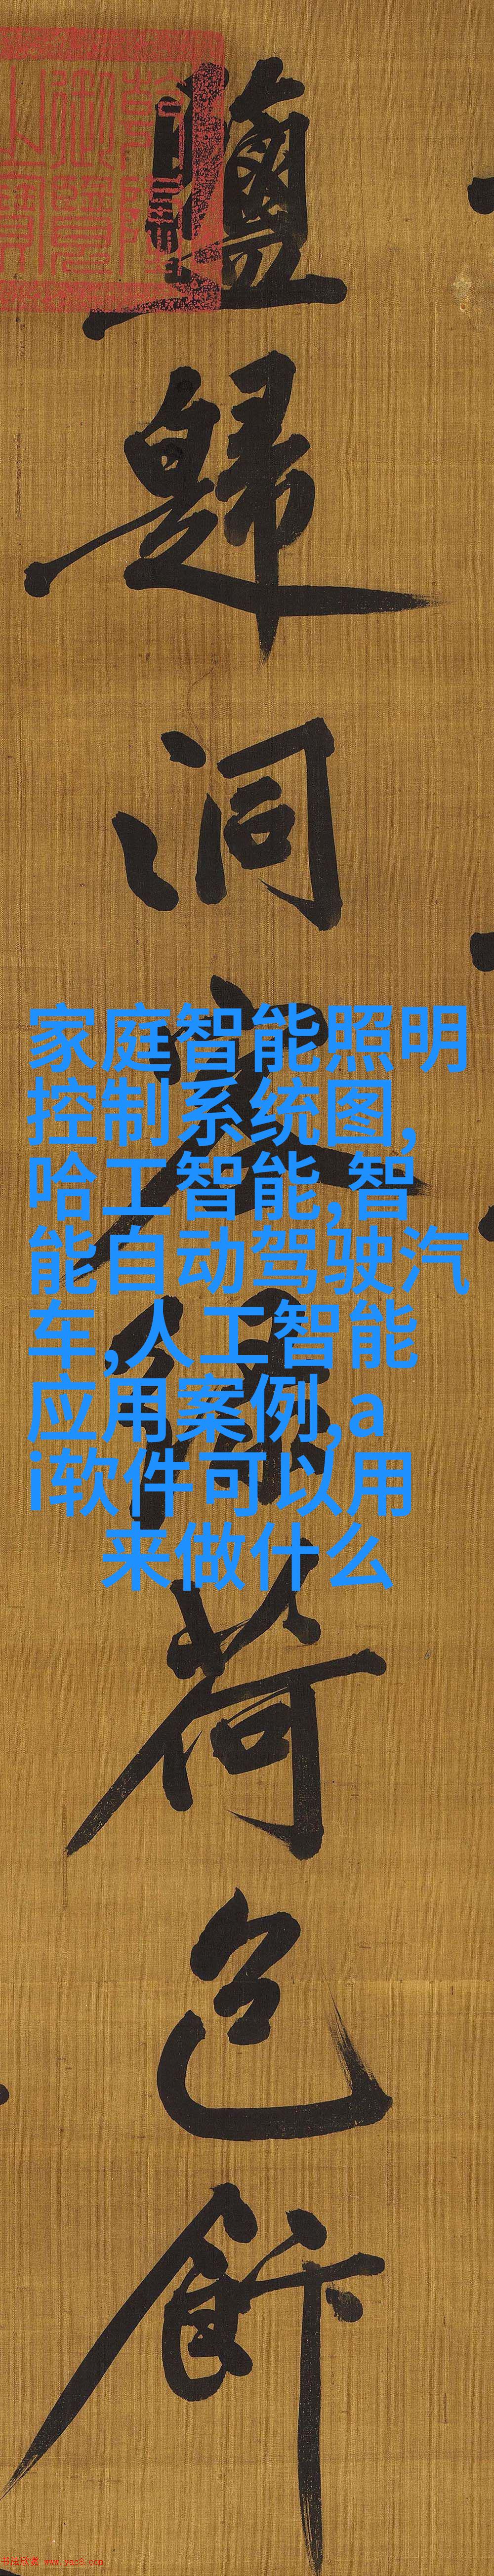 鹽歸洞客綠荷包飯
家庭智能照明
控制系统图,
哈工智能,智
能自动驾驶汽
车,人工智能
应用案例,a
i软件可以用
来做什么
书法欣赏 www.yac8.com